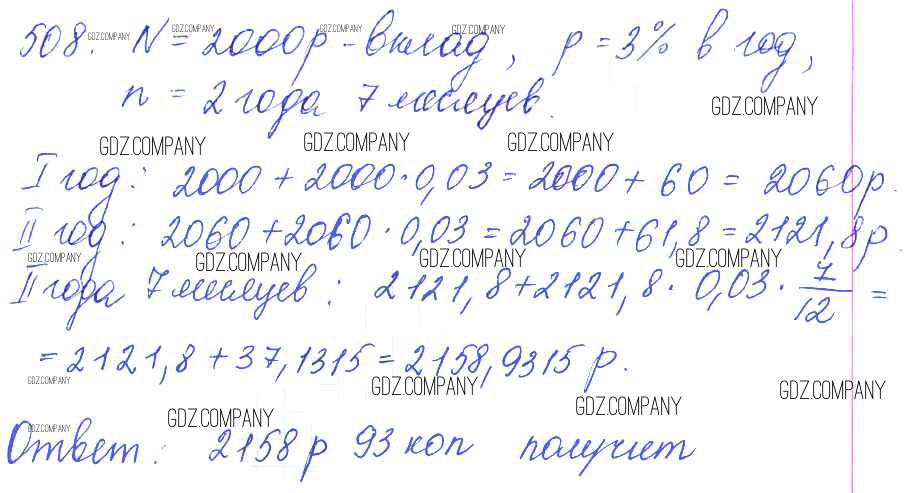 508. GDZ.COMPANY N = 2000р GDZ.COMPANY - вклад GDZ.COMPANY, p = 3% в год,
n = 2 года 7 месяцев. GDZ.COMPANY
GDZ.COMPANY GDZ.COMPANY GDZ.COMPANY
I год: 2000 + 2000 · 0,03 = 2000 + 60 = 2060р.
II год: 2060 + 2060 · 0,03 = 2060 + 61,8 = 2121,8р.
GDZ.COMPANY GDZ.COMPANY GDZ.COMPANY GDZ.COMPANY
II года 7 месяцев: 2121,8 + 2121,8 · 0,03 · 7/12 =
= 2121,8 + 37,1315 = 2158,9315 р.
GDZ.COMPANY GDZ.COMPANY GDZ.COMPANY
GDZ.COMPANY GDZ.COMPANY GDZ.COMPANY
Ответ: 2158 р 93 коп получит